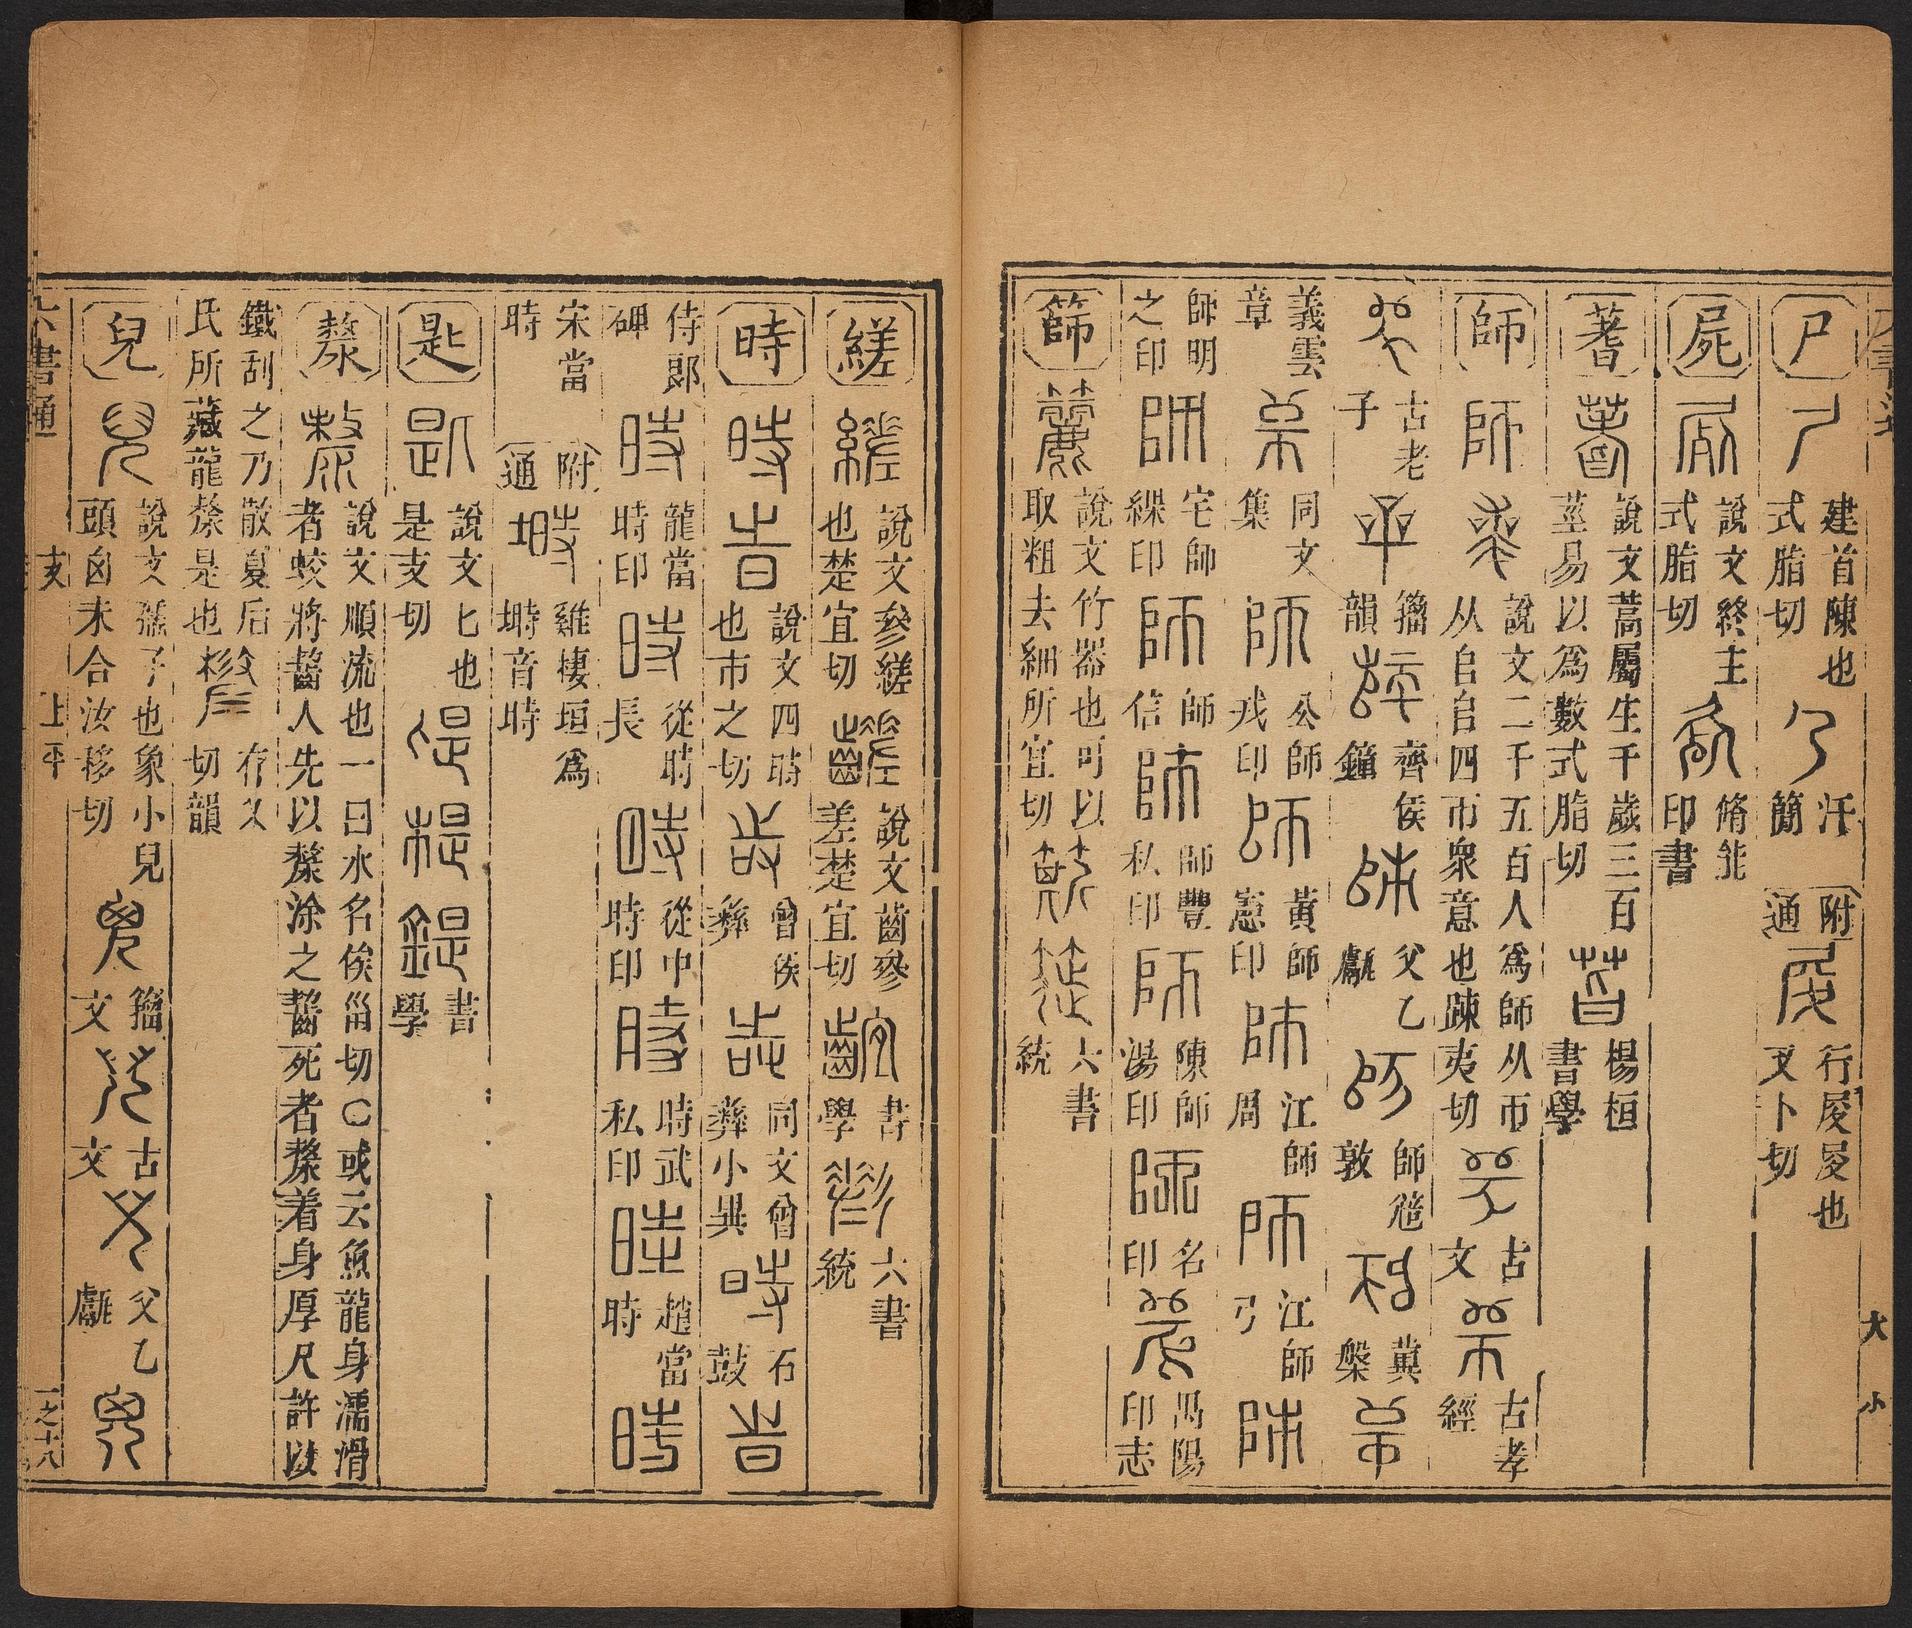 尸 建首陳也式脂切 汗簡 附通 行㞋㞋也叉卜切
屍 說文終主式脂切 脩能印書
蓍 說文蒿屬生千歲三百莖易以爲數式脂切 楊桓書學
師 說文二千五百人爲師从帀从𠂤𠂤四帀衆意也踈夷切 古文 古孝經
古老子 籀韻 齊侯鐘 父乙甗 師𠭯敦 冀槃
義雲章 同文集 公師戎印 黃師憲印 江師周 江師弓
師明之印 宅師緤印 師信 師豐私印 陳師湯印 名印 馮陽印志
篩 說文竹器也可以取粗去細所宜切 六書統
縒 說文參縒也楚宜切 說文齒參差楚宜切 書學 六書統
時 說文四時也市之切 曾侯彝 同文曾彝小異 石鼓
侍郎碑 龍當時印 從時長 從中時印 時武私印 趙當時
宋當時 附通 雞棲垣爲塒音時
匙 說文匕也是支切 書學
漦 說文順流也一曰水名俟甾切〇或云魚龍身濡滑者蛟將齧人先以漦涂之齧死者漦着身厚尺許以
鐵刮之乃散夏后氏所藏龍漦是也 存乂切韻
兒 說文孺子也象小兒頭囟未合汝移切 籀文 古文 父乙甗
六書通 支 上平 一之十八